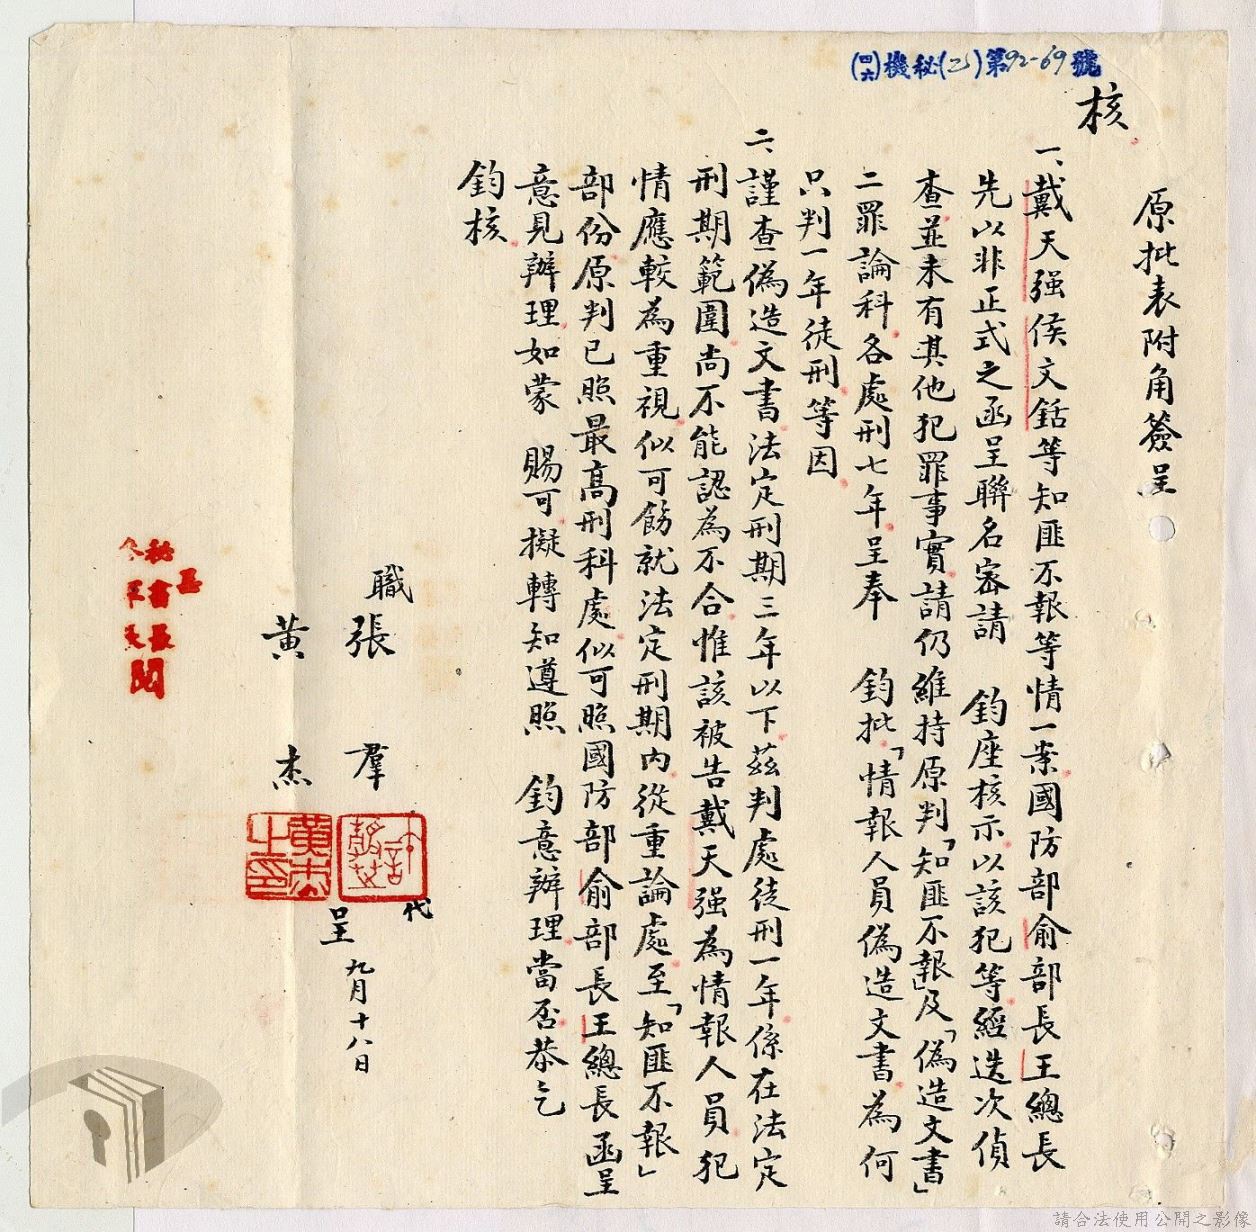 (四六)機秘(乙)第92-69號
核
原批表附角簽呈
一、戴天強侯文銛等知匪不報等情一案國防部俞部長王總長
先以非正式之函呈聯名密請　鈞座核示以該犯等經迭次偵
查並未有其他犯罪事實請仍維持原判「知匪不報」及「偽造文書」
二罪論科各處刑七年呈奉　鈞批「情報人員偽造文書為何
只判一年徒刑等因
二、謹查偽造文書法定刑期三年以下茲判處徒刑一年係在法定
刑期範圍尚不能認為不合惟該被告戴天強為情報人員犯
情應較為重視似可飭就法定刑期內從重論處至「知匪不報」
部份原判已照最高刑科處似可照國防部俞部長王總長函呈
意見辦理如蒙　賜可擬轉知遵照　鈞意辦理當否恭乞
鈞核
職張　羣
代
黃　杰
黃杰之印
呈　九月十八日
秘書長
閱
請合法使用公開之影像